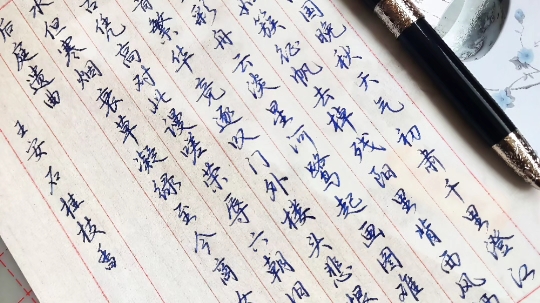 国晚秋天气初肃千里澄江
如簇征帆去棹残阳里背西风
彩舟云淡星河鹭起画图难
昔繁华竞逐叹门外楼头悲恨
古凭高对此谩嗟荣辱六朝旧
水但寒烟衰草凝绿至今商女
后庭遗曲 王安石桂枝香